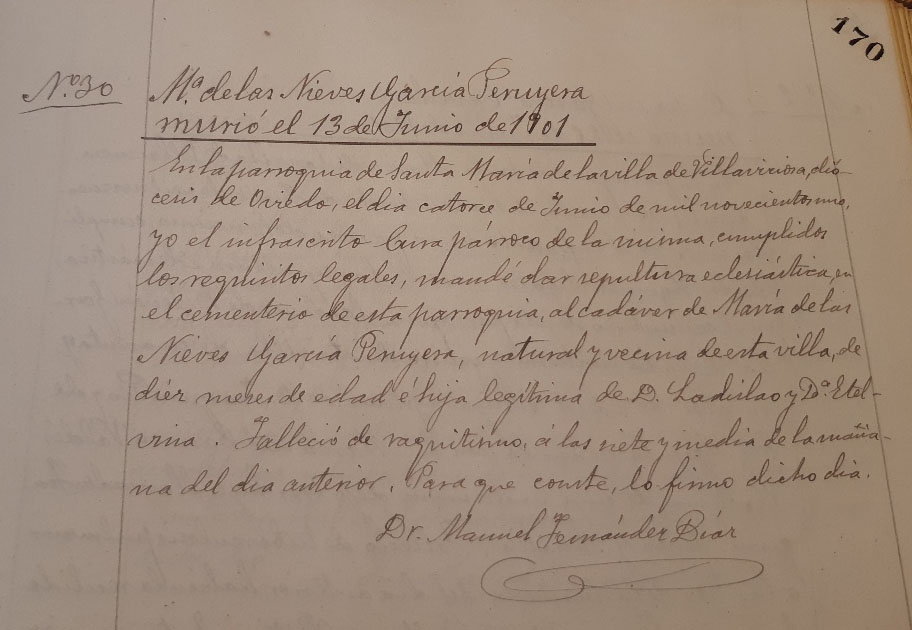 170
Nº 30
Mª de las Nieves García Peruyera
murió el 13 de Junio de 1901
En la parroquia de Santa María de la villa de Villaviciosa, dió-
cesis de Oviedo, el dia catorce de Junio de mil novecientos uno,
yo el infrascrito Cura párroco de la misma, cumplidos
los requisitos legales, mandé dar sepultura eclesiástica, en
el cementerio de esta parroquia, al cadáver de María de las
Nieves García Peruyera, natural y vecina de esta villa, de
diéz meses de edad é hija legítima de D. Ladislao y Dª Etel-
vina. Falleció de raquitismo, á las siete y media de la maña-
na del dia anterior. Para que conste, lo firmo dicho dia.
Dr. Manuel Fernández Díaz